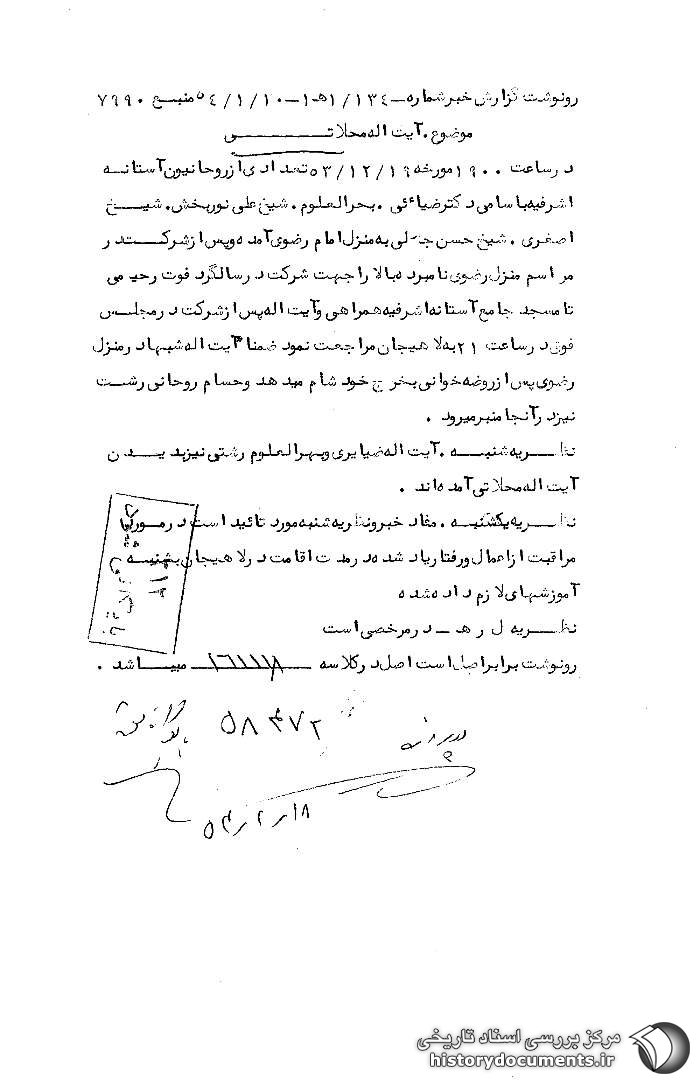 رونوشت گزارش خبر شماره ۱۳۴/ ۱ه‍ ۱ – ۱۰/ ۱/ ۵۴ منبع ۷۹۹۰
موضوع. آیت اله محلاتی
در ساعت ۱۹۰۰ مورخه ۱۹/ ۱۲/ ۵۳ تعدادی از روحانیون آستانه
اشرفیه باسامی دکتر ضیائی . بحرالعلوم . شیخ علی نوربخش. شیخ
اصغری . شیخ حسن به منزل امام رضوی آمده و پس از شرکت در
مراسم منزل رضوی نامبرده بالا را جهت شرکت در سالگرد فوت رحیمی
تا مسجد جامع آستانه اشرفیه همراهی و آیت اله پس از شرکت در مجلس
فوق در ساعت ۲۱ به لاهیجان مراجعت نمود ضمنا آیت اله شبها در منزل
رضوی پس از روضه خوانی بخرج خود شام میدهد و حسام روحانی رشت
نیز در آنجا منبر میرود .
نظریه شنبه . آیت اله ضیابری و بهرالعلوم رشتی نیز بدیدن
آیت اله محلاتی آمده اند .
نظریه یکشنبه . مفاد خبر و نظریه شنبه مورد تائید است در مورد
مراقبت از اعمال و رفتار یاد شده در مدت اقامت در لاهیجان بشنبه
آموزشهای لازم داده شده
نظریه ل ر هـ در مرخصی است
رونوشت برابر اصل است اصل در کلاسه ۱۶۱۱۱۸ میباشد .
۵۸۴۷۲
پرونده
۱۸ر۲ر۵۴
مرکز بررسی اسناد تاریخی
historydocuments.ir